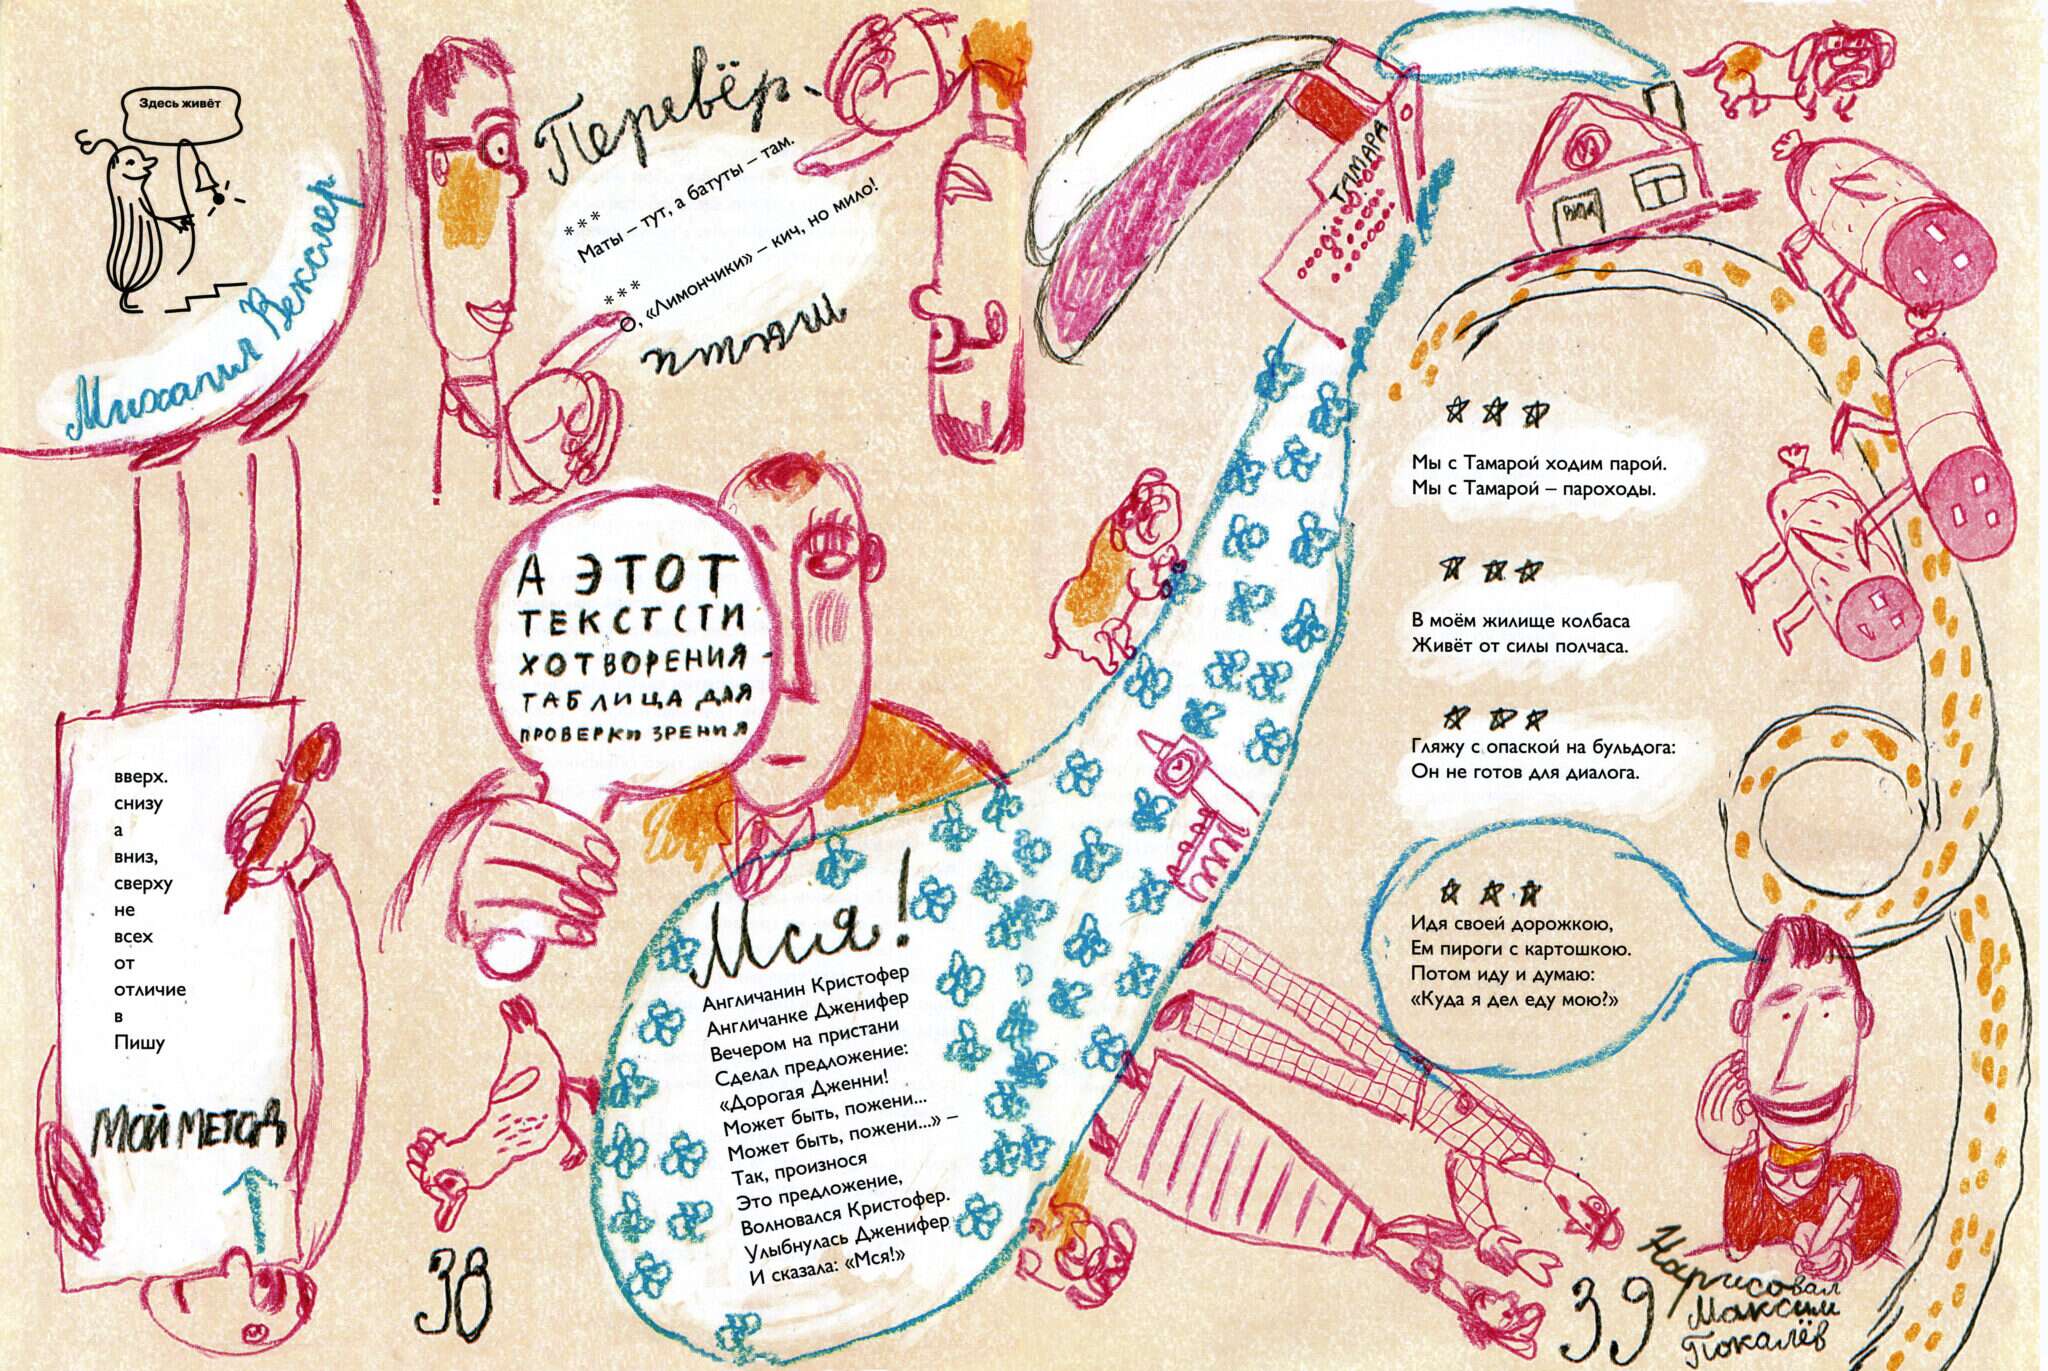 Здесь живёт
Михаил Векслер
Перевёр-
* * *
Маты – тут, а батуты – там.
* * *
О, «Лимончики» – кич, но мило!
птыш
А ЭТОТ
ТЕКСТ СТИ
ХОТВОРЕНИЯ -
ТАБЛИЦА ДЛЯ
ПРОВЕРКИ ЗРЕНИЯ
вверх.
снизу
а
вниз,
сверху
не
всех
от
отличие
в
Пишу
МОЙ МЕТОД
Мся!
Англичанин Кристофер
Англичанке Дженифер
Вечером на пристани
Сделал предложение:
«Дорогая Дженни!
Может быть, пожени...
Может быть, пожени...» –
Так, произнося
Это предложение,
Волновался Кристофер.
Улыбнулась Дженифер
И сказала: «Мся!»
38
ТАМАРА
Мы с Тамарой ходим парой.
Мы с Тамарой – пароходы.
В моём жилище колбаса
Живёт от силы полчаса.
Гляжу с опаской на бульдога:
Он не готов для диалога.
Идя своей дорожкою,
Ем пироги с картошкою.
Потом иду и думаю:
«Куда я дел еду мою?»
39
Нарисовал
Максим
Покалёв